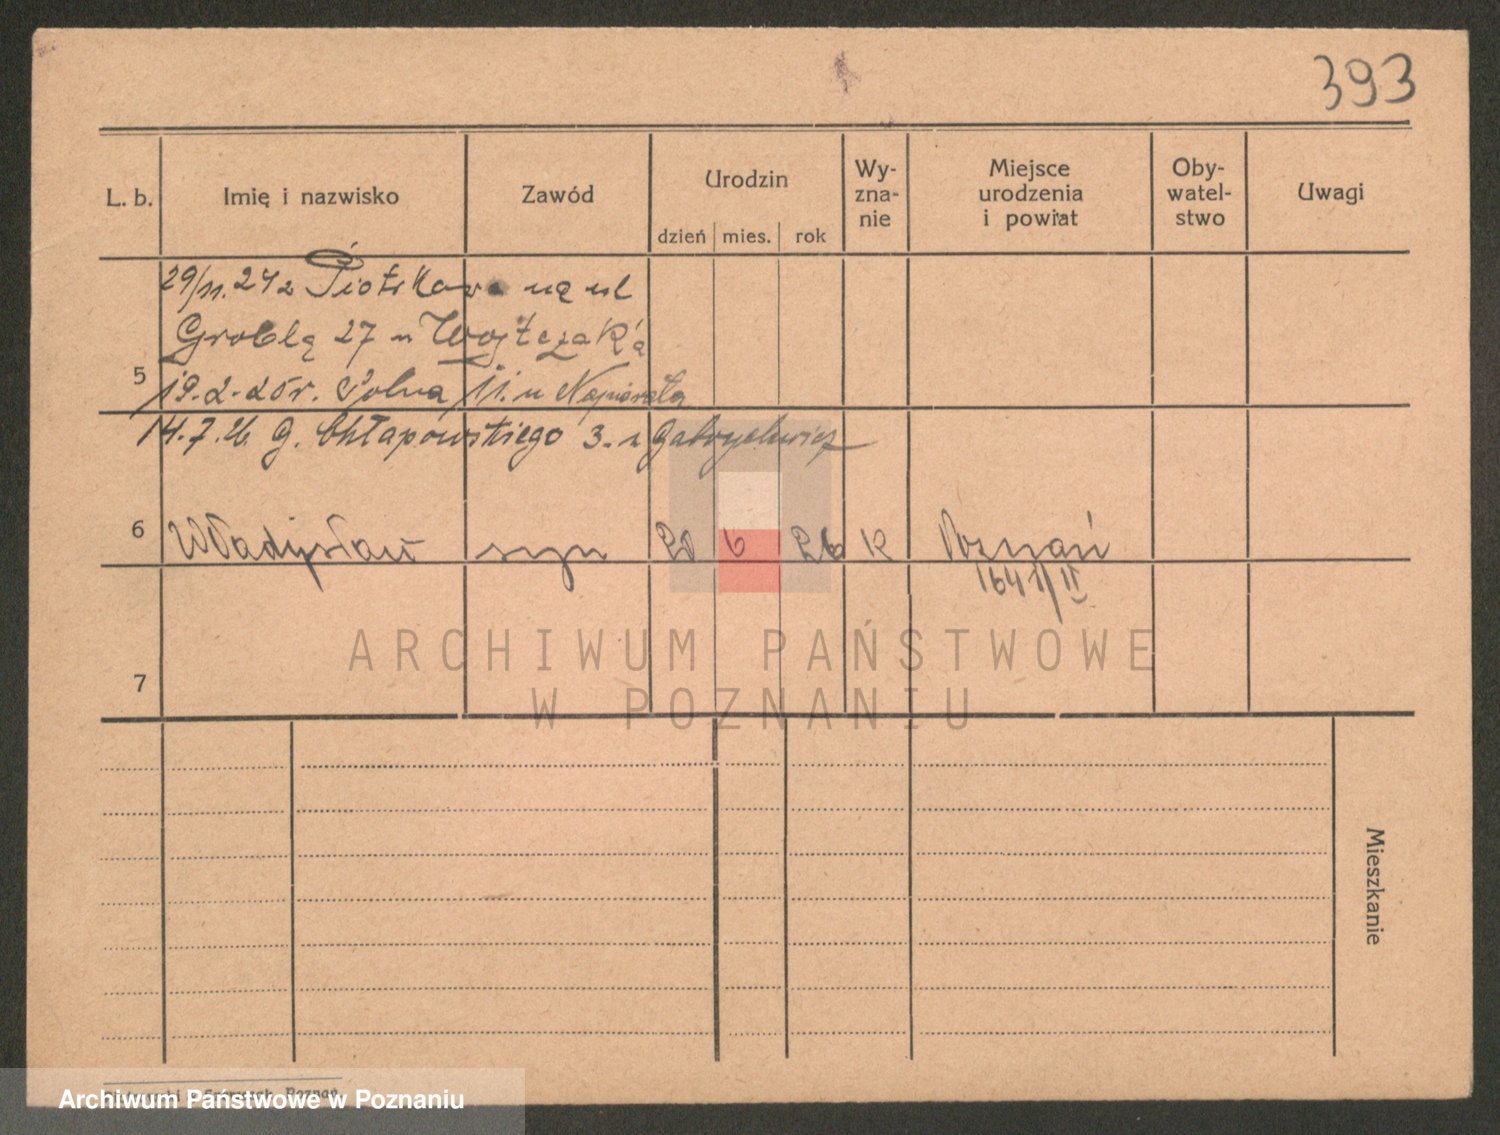 393
L. b. Imię i nazwisko Zawód Urodzin Wy- zna- nie Miejsce urodzenia i powiat Oby- watel- stwo Uwagi
dzień mies. rok
29/11.24 z Piotrkowa na ul
Groblą 27 u Wojtczaka
5
19.2.25 r. Polna 11. u Napierała
14.7.26 G. Chłapowskiego 3. u Gabryelewicz
6 Władysław syn 20 6 26 k Poznań
1641/II
7
ARCHIWUM PAŃSTWOWE
W POZNANIU
Mieszkanie
Poznań
Archiwum Państwowe w Poznaniu